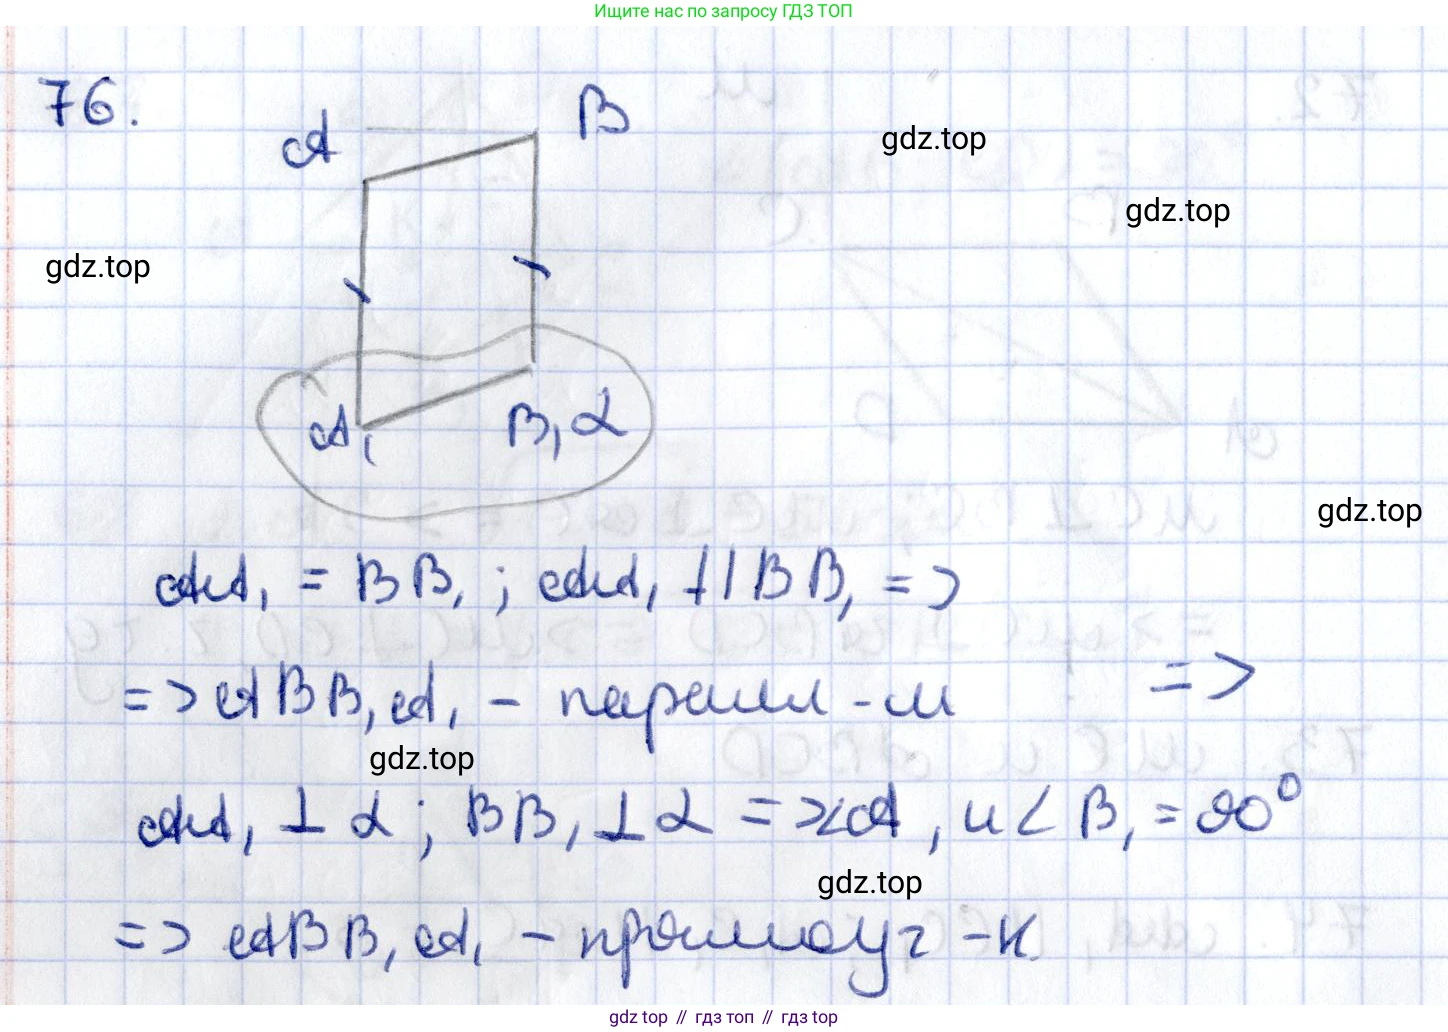 Ищите нас по запросу ГДЗ ТОП
76.
A B
gdz.top
gdz.top
gdz.top
A₁ B₁ α
gdz.top
AA₁ = BB₁ ; AA₁ || BB₁ =>
=> ABB₁A₁ - паралл-м =>
gdz.top
AA₁ ⊥ α ; BB₁ ⊥ α => ∠A₁ и ∠B₁ = 90°
gdz.top
=> ABB₁A₁ - прямоуг-к
gdz top // гдз топ // гдз top